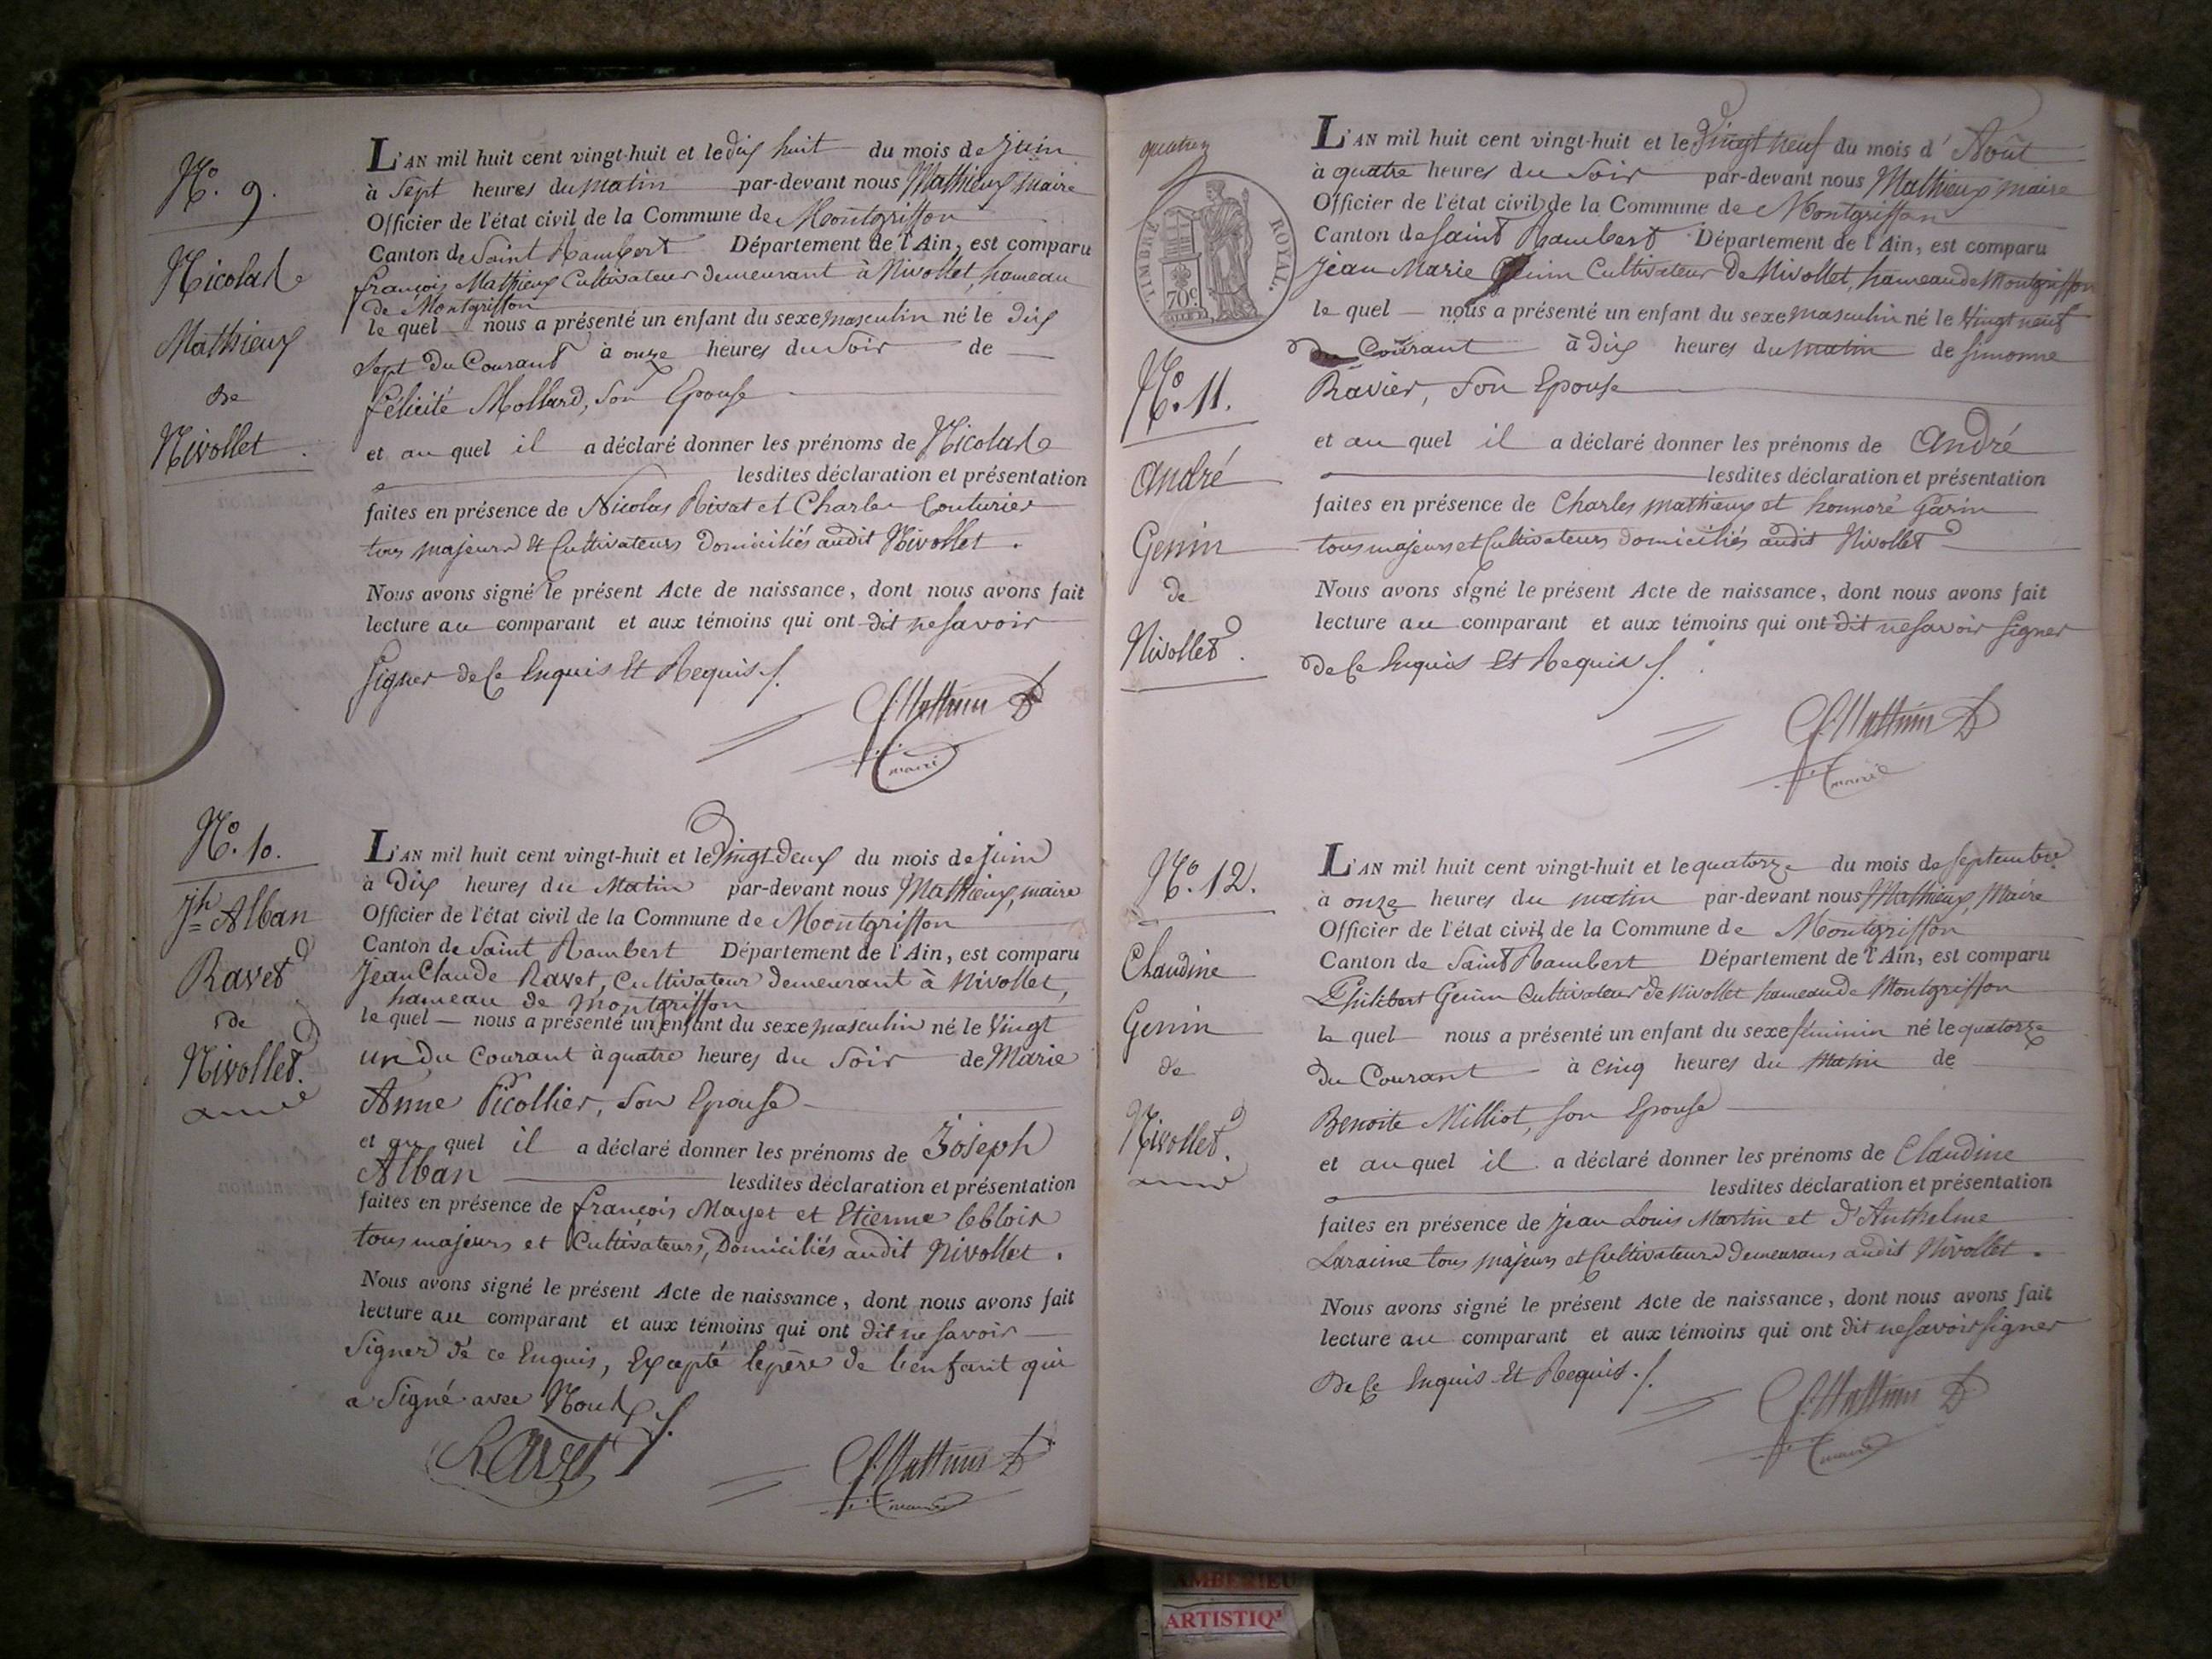 N.º 9.
Nicolas
Mathieux
de
Nivollet.
L'AN mil huit cent vingt-huit et le dix huit du mois de Juin
à Sept heures du matin par-devant nous Mathieux maire
Officier de l'état civil de la Commune de Montgriffon
Canton de Saint Rambert Département de l'Ain, est comparu
françois Mathieux Cultivateur demeurant à Nivollet, hameau
de Montgriffon
le quel nous a présenté un enfant du sexe masculin né le dix
sept du Courant à onze heures du Soir de
félicité Mollard, Son Epouse
et au quel il a déclaré donner les prénoms de Nicolas
lesdites déclaration et présentation
faites en présence de Nicolas Rivat et Charles Couturier
tous majeurs et Cultivateurs Domiciliés audit Nivollet.
Nous avons signé le présent Acte de naissance, dont nous avons fait
lecture au comparant et aux témoins qui ont dit ne Savoir
Signer de Ce Enquis Et Requis ./.
Mathieux
maire
N.º 10.
Jh Alban
Ravet
de
Nivollet.
L'AN mil huit cent vingt-huit et le Vingt-Deux du mois de Juin
à Dix heures du Matin par-devant nous Mathieux, maire
Officier de l'état civil de la Commune de Montgriffon
Canton de Saint Rambert Département de l'Ain, est comparu
Jean Claude Ravet, Cultivateur demeurant à Nivollet,
hameau de Montgriffon
le quel nous a présenté un enfant du sexe masculin né le Vingt
un Du Courant à quatre heures du Soir de Marie
Anne Picollier, Son Epouse
et au quel il a déclaré donner les prénoms de Joseph
Alban lesdites déclaration et présentation
faites en présence de françois Mayet et Etienne leblois
tous majeurs et Cultivateurs, Domiciliés audit Nivollet.
Nous avons signé le présent Acte de naissance, dont nous avons fait
lecture au comparant et aux témoins qui ont dit ne Savoir
Signer de ce Enquis, Excepté le père de l'enfant qui
a Signé avec Nous ./.
Ravet
Mathieux
maire
TIMBRE ROYAL.
70c
N.º 11.
André
Genin
de
Nivollet.
L'AN mil huit cent vingt-huit et le Vingt neuf du mois d' Août
à quatre heures du Soir par-devant nous Mathieux maire
Officier de l'état civil de la Commune de Montgriffon
Canton de Saint Rambert Département de l'Ain, est comparu
Jean Marie Genin Cultivateur De Nivollet, hameau de Montgriffon
le quel nous a présenté un enfant du sexe masculin né le Vingt neuf
du Courant à Dix heures du matin de Simonne
Ravier, Son Epouse
et au quel il a déclaré donner les prénoms de André
lesdites déclaration et présentation
faites en présence de Charles Mathieux et honnoré Garin
tous majeurs et Cultivateurs domiciliés audit Nivollet
Nous avons signé le présent Acte de naissance, dont nous avons fait
lecture au comparant et aux témoins qui ont dit ne Savoir Signer
de Ce Enquis Et Requis ./.
Mathieux
maire
N.º 12.
Claudine
Genin
de
Nivollet.
L'AN mil huit cent vingt-huit et le quatorze du mois de Septembre
à onze heures du matin par-devant nous Mathieux, Maire
Officier de l'état civil de la Commune de Montgriffon
Canton de Saint Rambert Département de l'Ain, est comparu
Philibert Genin Cultivateur de Nivollet hameau de Montgriffon
le quel nous a présenté un enfant du sexe féminin né le quatorze
du Courant à cinq heures du Matin de
Benoite Milliot, Son Epouse
et au quel il a déclaré donner les prénoms de Claudine
lesdites déclaration et présentation
faites en présence de Jean Louis Martin et d'Anthelme
Laracine tous majeurs et Cultivateurs demeurans audit Nivollet.
Nous avons signé le présent Acte de naissance, dont nous avons fait
lecture au comparant et aux témoins qui ont dit ne Savoir Signer
De Ce Enquis Et Requis ./.
Mathieux
maire
AMBERIEU
ARTISTIQ